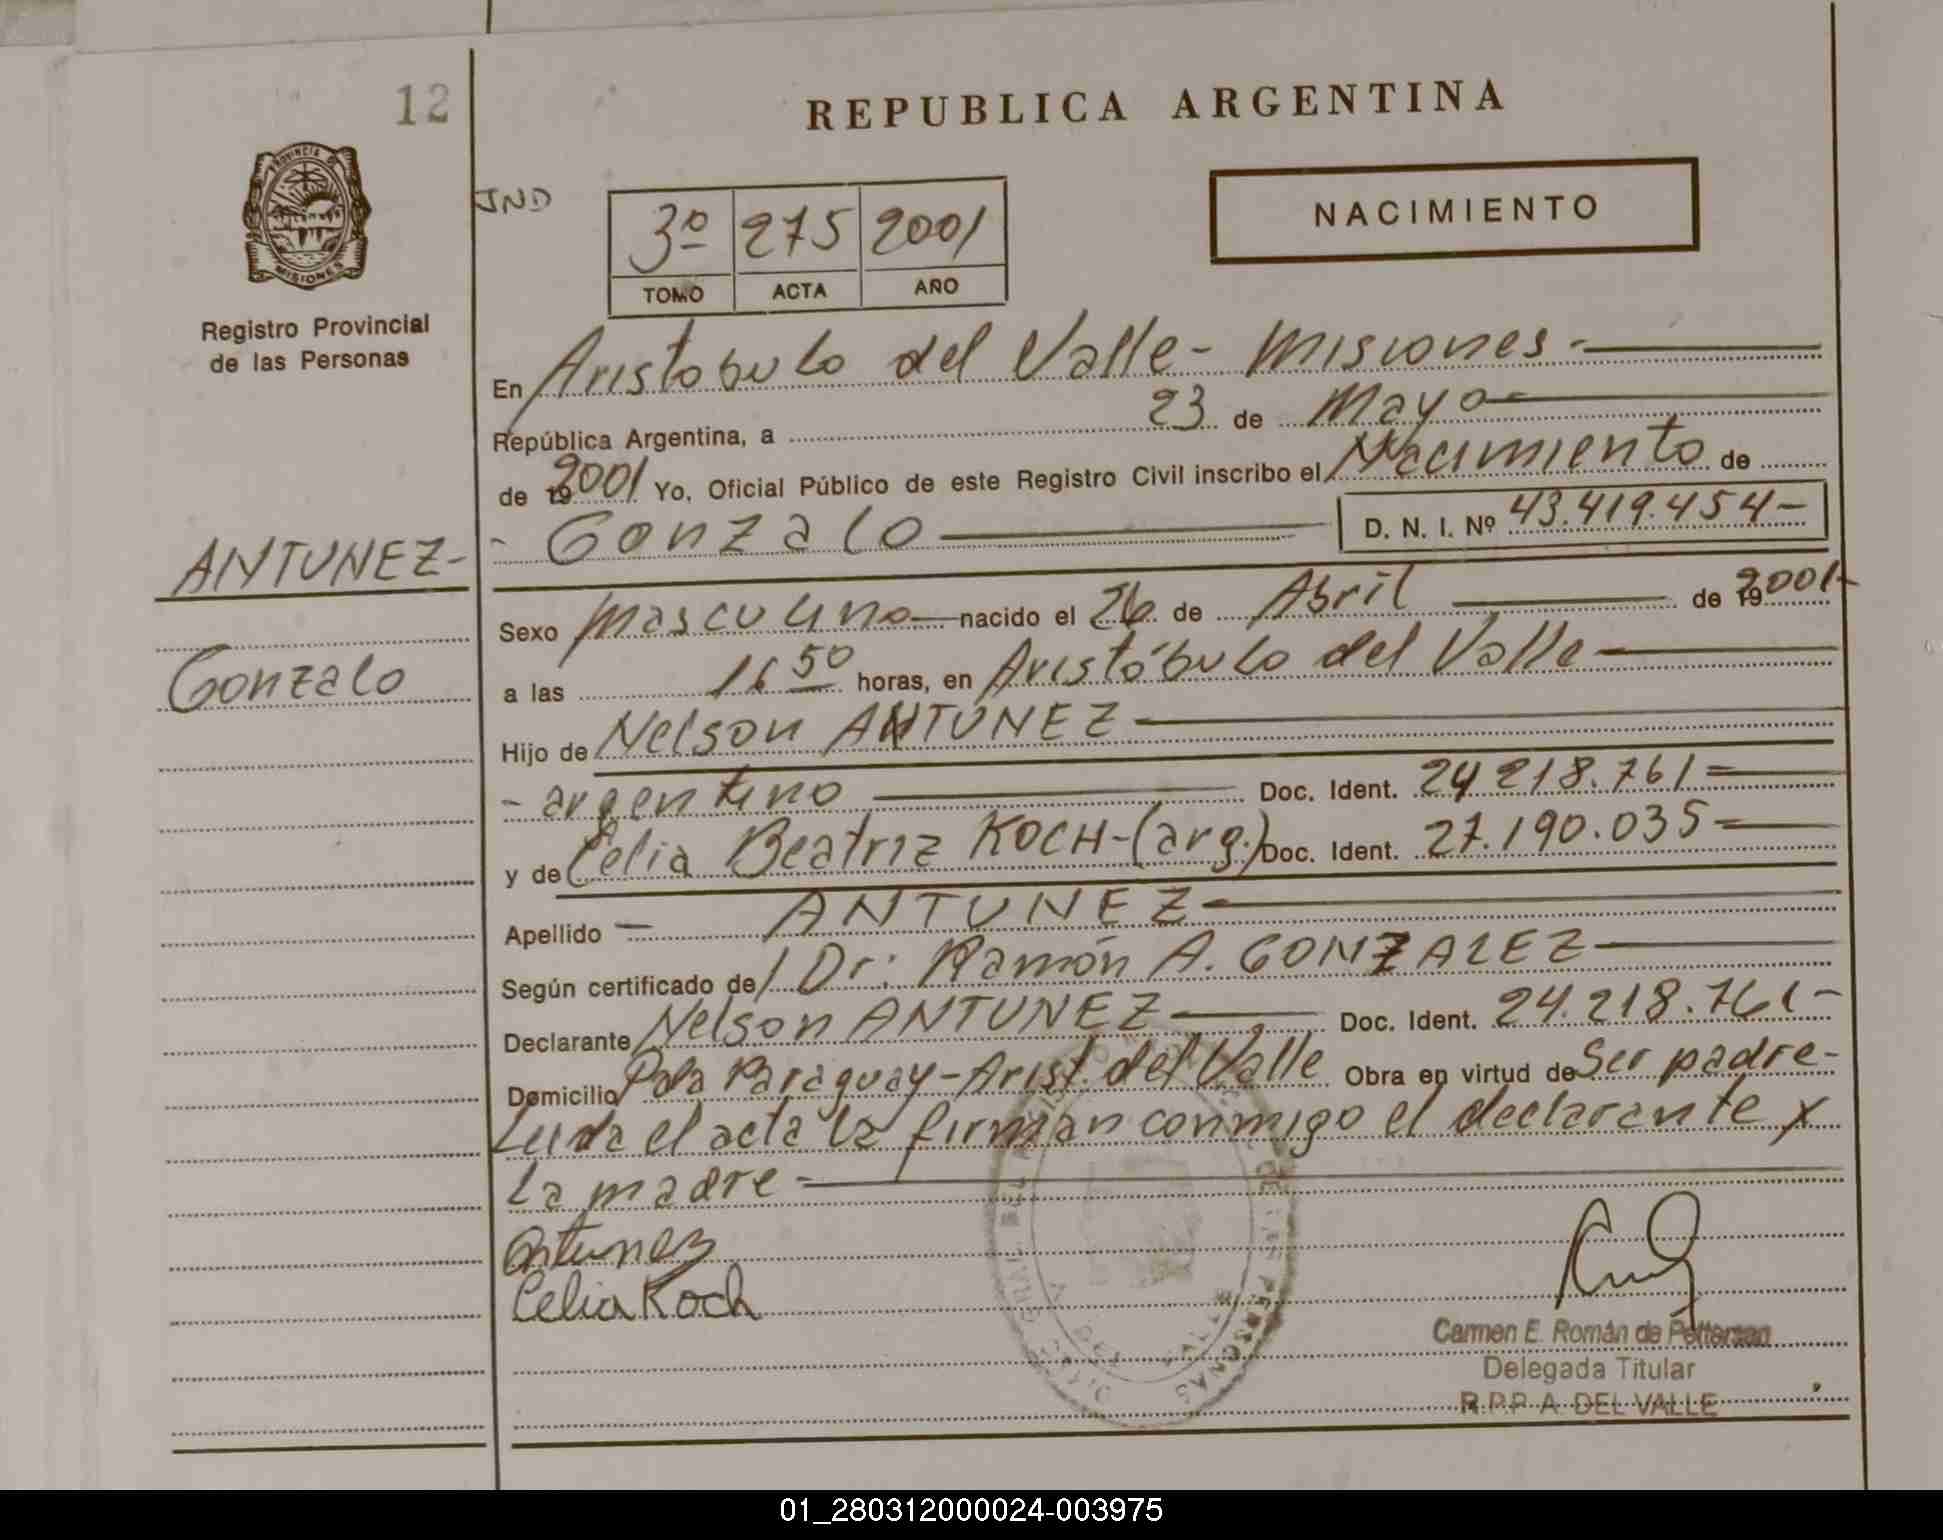 12
REPUBLICA ARGENTINA
PROVINCIA DE
MISIONES
Registro Provincial
de las Personas
IND
3º 275 2001
TOMO ACTA AÑO
NACIMIENTO
En Aristobulo del Valle - Misiones -
República Argentina, a 23 de Mayo
de 19 2001 Yo, Oficial Público de este Registro Civil inscribo el Nacimiento de
- Gonzalo D. N. I. Nº 43.419.454-
ANTUNEZ-
Gonzalo
Sexo masculino nacido el 26 de Abril de 19 2001-
a las 16 50 horas, en Aristóbulo del Valle
Hijo de Nelson ANTUNEZ
- argentino Doc. Ident. 24 218.761=
y de Celia Beatriz KOCH-(arg.) Doc. Ident. 27.190.035=
Apellido ANTUNEZ
Según certificado de Dr: Ramón A. GONZALEZ
Declarante Nelson ANTUNEZ Doc. Ident. 24.218.761-
Domicilio Pda Paraguay-Arist. del Valle Obra en virtud de Ser padre-
Leida el acta la firman conmigo el declarante y
La madre -
Antunez
Celia Koch
Carmen E. Román de Petterson
Delegada Titular
R.P.P. A. DEL VALLE
DE LAS PERSONAS
01_280312000024-003975